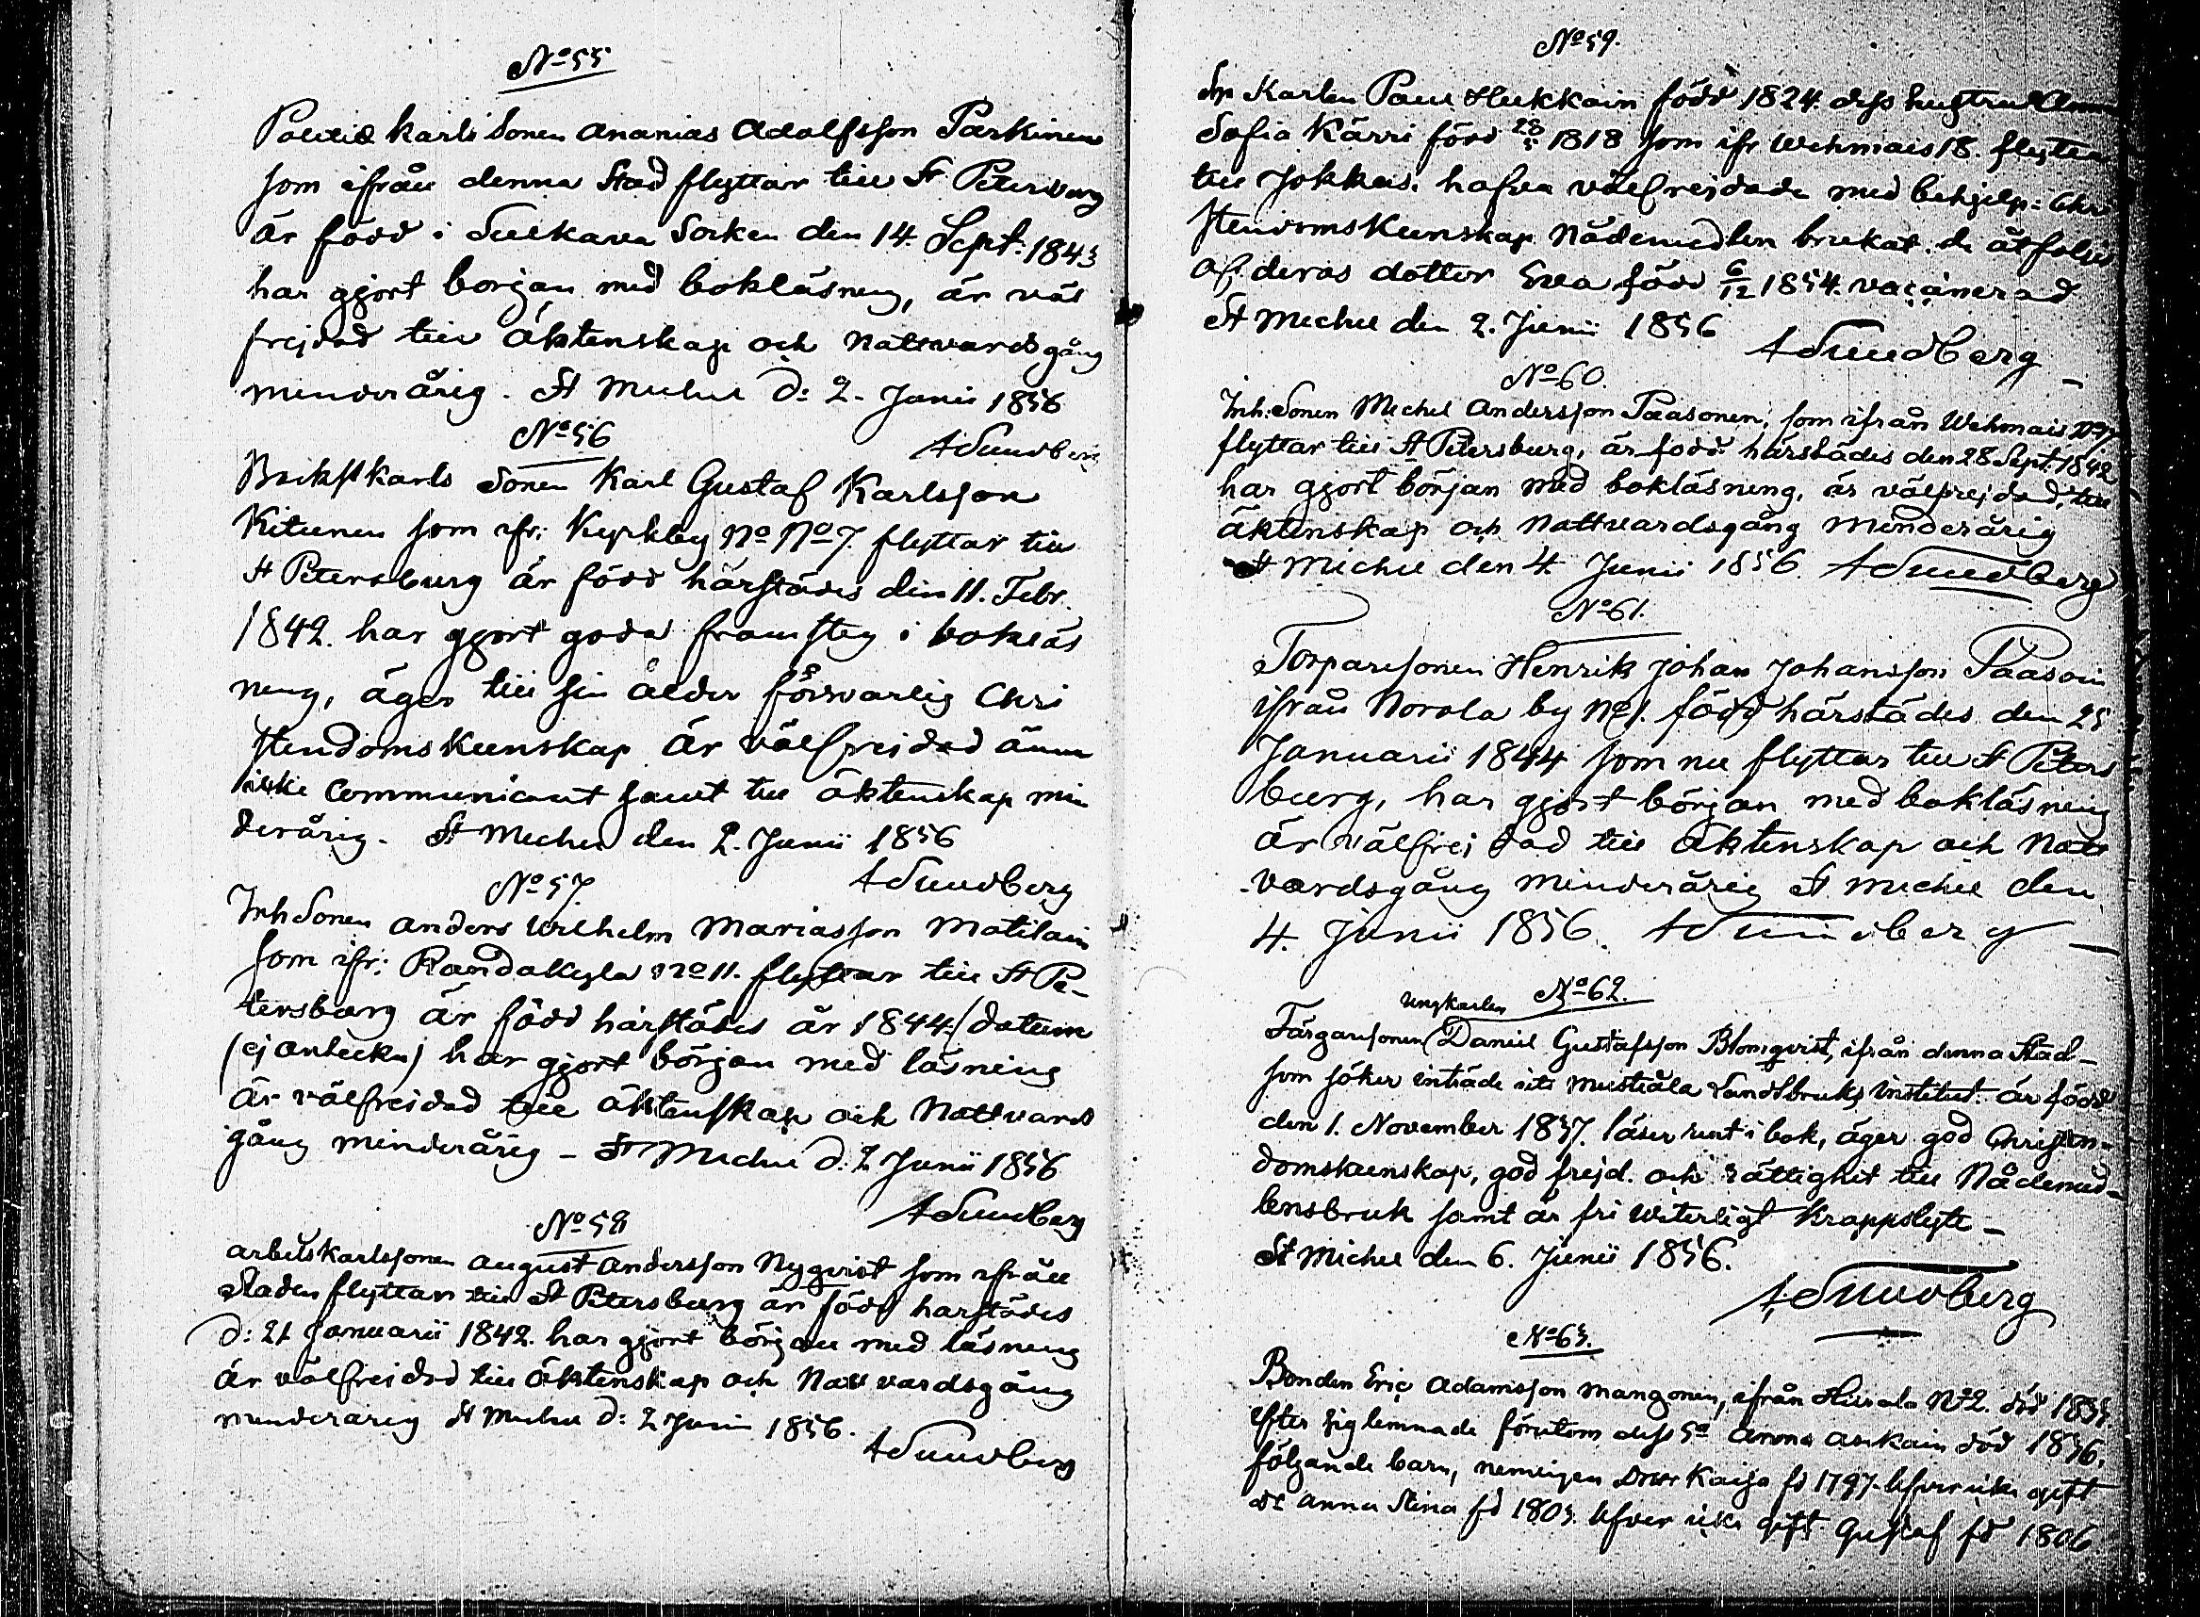 No 55
karls Sonen Ananias Adolfsson Parkinen
som ifrån denna Stad flyttar till St Petersburg
är född i Sulkava Socken den 14. Sept: 1843
har gjort borjan med bokläsning, är väl
frejdad till äktenskap och Nattvardsgång
minderårig. St Michel d: 2. Junii 1856
ASundberg
No 56
karls Sonen Karl Gustaf Karlsson
Kitunen som ifr: Kyrkby No No 7. flyttar till
St Petersburg är född härstädes den 11. Febr.
1842. har gjort goda framsteg i bokläs
ning, äger till sin ålder försvarlig Chri
stendomskunskap är välfrejdad ännu
icke Communicant samt till äktenskap min
derårig. St Michel den 2. Junii 1856
ASundberg
No 57.
Inh Sonen Anders Wilhelm Mariasson Matilain
som ifr: Randakyla No 11. flyttar till St Pe-
tersburg är född härstädes år 1844 (datum
(ej anteckn) har gjort början med läsning
är välfrejdad till äktenskap och Nattvards
gång minderårig - St Michel d. 2 Junii 1856
ASundberg
No 58
arbetskarlssonen August Andersson Nyqvist som ifrån
staden flyttar till St Petersburg är född harstädes
d: 21 Januarii 1842. har gjort början med läsning
är välfrejdad till äktenskap och Nattvardsgång
minderarig St Michel d: 2 Junii 1856.
ASundberg
No 59.
Karlen Paul Hukkain född 1824. dess hustru Anna
Sofia Kärri född 28/5 1818 som ifr Wehmais 18. flytta
till Jokkas. hafva välfrejdade med behjelp: Chri
stendomskunskap Nådemedlen brukat. de åtföljes
af deras dotter Eva född 6/12 1854. vaccinerad
St Michel den 2. Junii 1856
ASundberg
No 60.
Inh: Sonen Michel Andersson Paasonen, som ifrån Wehmais
flyttar till St Petersburg, är född härstädes den 28 Sept. 1842
har gjort början med bokläsning, är välfrejdad, till
äktenskap och Nattvardsgång minderårig
St Michel den 4. Junii 1856. ASundberg
No 61.
Torparesonen Henrik Johan Johansson Paasoin
ifrån Norola by No 1. född härstädes den 25
Januarii 1844 som nu flyttar till St Peters
burg, har gjort början med bokläsning
är välfrejdad till äktenskap och Natt
vardsgång minderårig St Michel den
4. Junii 1856. ASundberg
No 62.
Ungkarlen
Färgaresonen Daniel Gustafsson Blomqvist, ifrån denna Stad-
som söker inträde uti Mustiala Landtbruks institut. är född
den 1. November 1837. läser rent i bok, äger god Christen-
domskunskap, god frejd. och rättighet till Nådemed-
lensbruk samt är fri witerligt kroppslyte -
St Michel den 6. Junii 1856.
ASundberg
No 63.
Bonden Eric Adamsson Mangonen, ifrån Hirvola No 2. död
efter sig lemnade förutom dess Anna Asikain död
följande barn, nemligen Dottr Kaisa fd 1797. lefver icke gift
Anna Stina fd 1803. lefver icke gift. Gustaf fd 1806